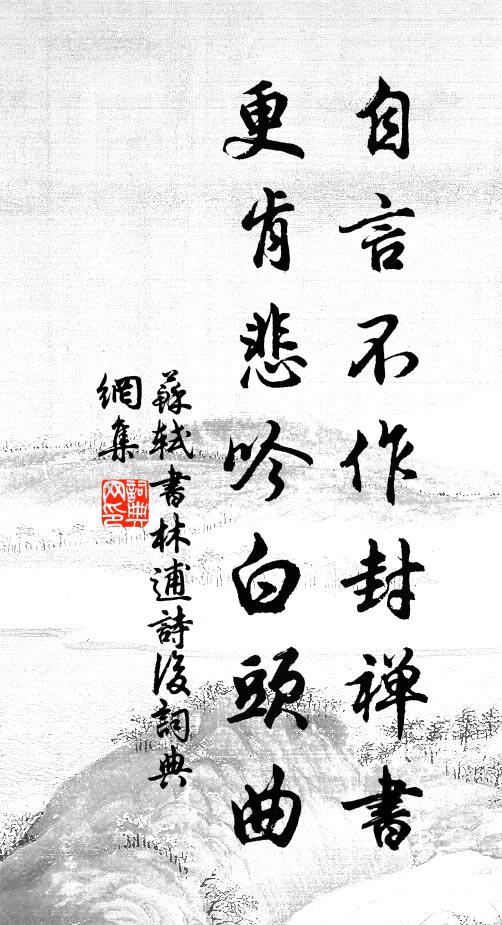 自言不作封禅書
更肯悲吟白頭曲
蘇軾書林逋詩後詞典
網集
詞典
网印